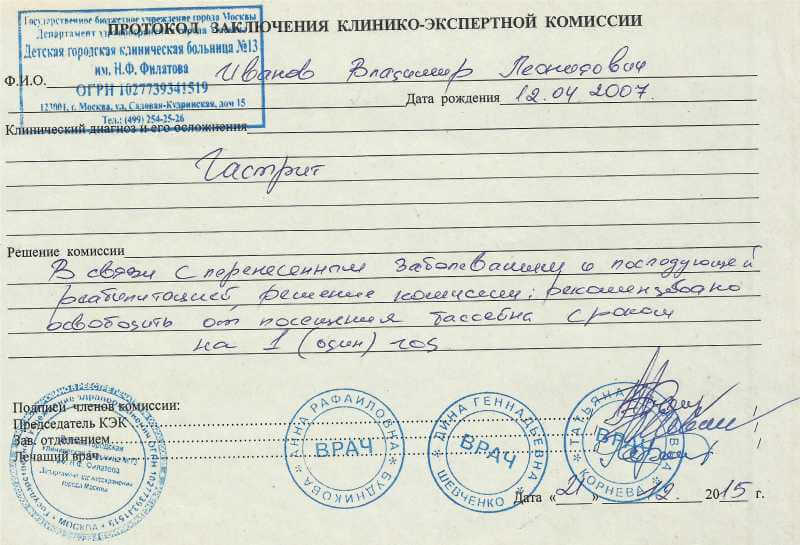 Государственное бюджетное учреждение города Москвы
Департамент здравоохранения города Москвы
Детская городская клиническая больница №13
им. Н.Ф. Филатова
ОГРН 1027739341519
123001, г. Москва, ул. Садовая-Кудринская, дом 15
Тел.: (499) 254-25-26
ПРОТОКОЛ ЗАКЛЮЧЕНИЯ КЛИНИКО-ЭКСПЕРТНОЙ КОМИССИИ
Ф.И.О. Иванов Владимир Леонидович
Дата рождения 12.04 2007.
Клинический диагноз и его осложнения
Гастрит
Решение комиссии
В связи с перенесенным заболеванием и последующей
реабилитацией, решение комиссии: рекомендовано
освободить от посещения бассейна сроком
на 1 (один) год
Подписи членов комиссии:
Председатель КЭК
Зав. отделением
Лечащий врач
АННА РАФАИЛОВНА
ВРАЧ
БУДНИКОВА
ДИНА ГЕННАДЬЕВНА
ВРАЧ
ШЕВЧЕНКО
ТАТЬЯНА
ВРАЧ
КОРНЕВА
ОГРН 1027739341519
им. Н.Ф. Филатова
Департамент здравоохранения
города Москвы
МОСКВА
Дата «21» 12. 2015 г.